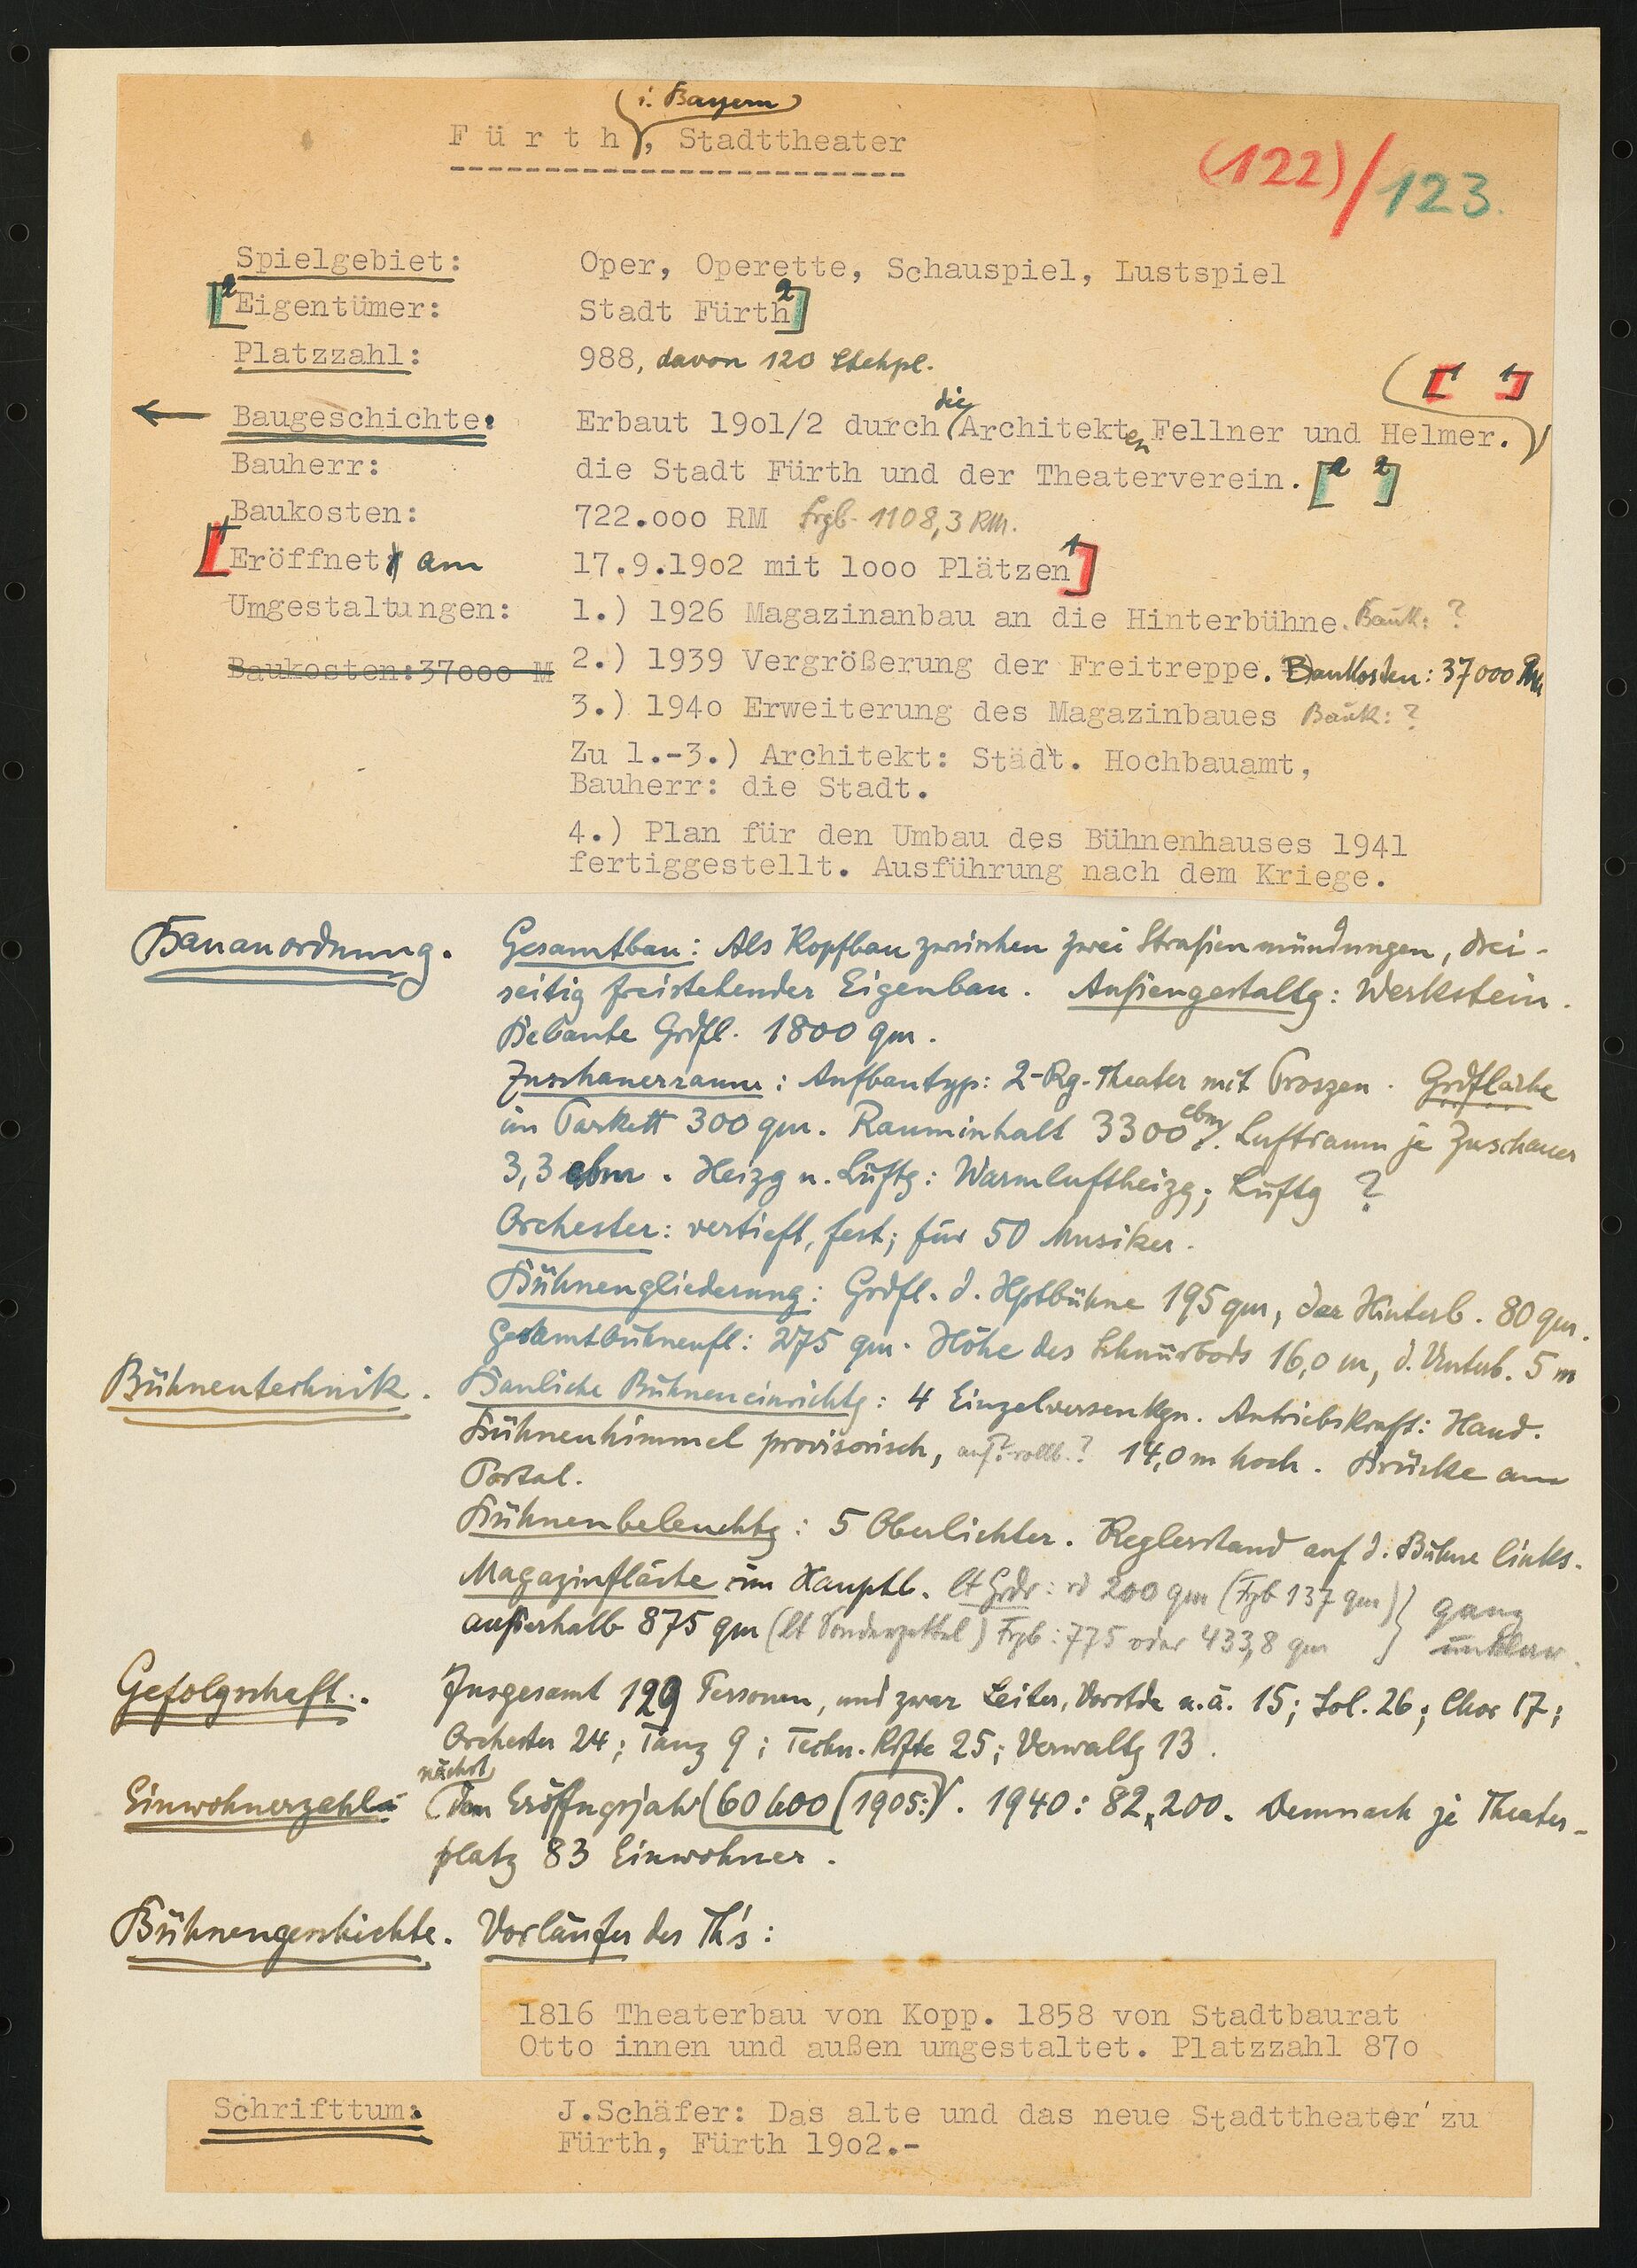 (i. Bayern)
Fürth, Stadttheater
(122)/123.
Spielgebiet: Oper, Operette, Schauspiel, Lustspiel
[2 Eigentümer: Stadt Fürth 2]
Platzzahl: 988, davon 120 Stehpl.
[1 1]
die
Baugeschichte: Erbaut 19o1/2 durch Architekten Fellner und Helmer.
Bauherr: die Stadt Fürth und der Theaterverein. [2 2]
Baukosten: 722.ooo RM Frgb. 1108,3 RM.
[1 Eröffnet am 17.9.19o2 mit 1ooo Plätzen 1]
Umgestaltungen: 1.) 1926 Magazinanbau an die Hinterbühne. Bauk: ?
Baukosten:37ooo M 2.) 1939 Vergrößerung der Freitreppe. Baukosten: 37000 RM
3.) 194o Erweiterung des Magazinbaues Bauk: ?
Zu 1.-3.) Architekt: Städt. Hochbauamt,
Bauherr: die Stadt.
4.) Plan für den Umbau des Bühnenhauses 1941
fertiggestellt. Ausführung nach dem Kriege.
Bauanordnung. Gesamtbau: Als Kopfbau zwischen zwei Straßenmündungen, drei-
seitig freistehender Eigenbau. Außengestaltg: Werkstein.
Bebaute Grdfl. 1800 qm.
Zuschauerraum: Aufbautyp: 2-Rg-Theater mit Proszen. Grdfläche
im Parkett 300 qm. Rauminhalt 3300 cbm. Luftraum je Zuschauer
3,3 cbm. Heizg u. Lüftg: Warmluftheizg; Lüftg ?
Orchester: vertieft, fest; für 50 Musiker.
Bühnengliederung: Grdfl. d. Hptbühne 195 qm, der Hinterb. 80 qm.
Gesamtbühnenfl: 275 qm. Höhe des Schnürbods 16,0 m, d. Unterb. 5 m
Bühnentechnik. Bauliche Bühneneinrichtg: 4 Einzelversenkgn. Antriebskraft: Hand.
Bühnenhimmel provisorisch, auf?rollb.? 14,0 m hoch. Brücke am
Portal.
Bühnenbeleuchtg: 5 Oberlichter. Reglerstand auf d. Bühne links.
Magazinfläche im Hauptb. lt Grdr: rd 200 qm (Frgb 137 qm) } ganz
außerhalb 875 qm (lt Sonderzettel) Frgb: 775 oder 433,8 qm } unklar.
Gefolgschaft. Insgesamt 129 Personen, und zwar Leiter, Vorstde u.ä. 15; Sol. 26; Chor 17;
Orchester 24; Tanz 9; Techn. Kräfte 25; Verwaltg 13.
nächst
Einwohnerzahl: dem Eröffngsjahr (60600 (1905:). 1940: 82,200. Demnach je Theater-
platz 83 Einwohner.
Bühnengeschichte. Vorläufer des Th's:
1816 Theaterbau von Kopp. 1858 von Stadtbaurat
Otto innen und außen umgestaltet. Platzzahl 87o
Schrifttum: J.Schäfer: Das alte und das neue Stadttheater zu
Fürth, Fürth 19o2.-